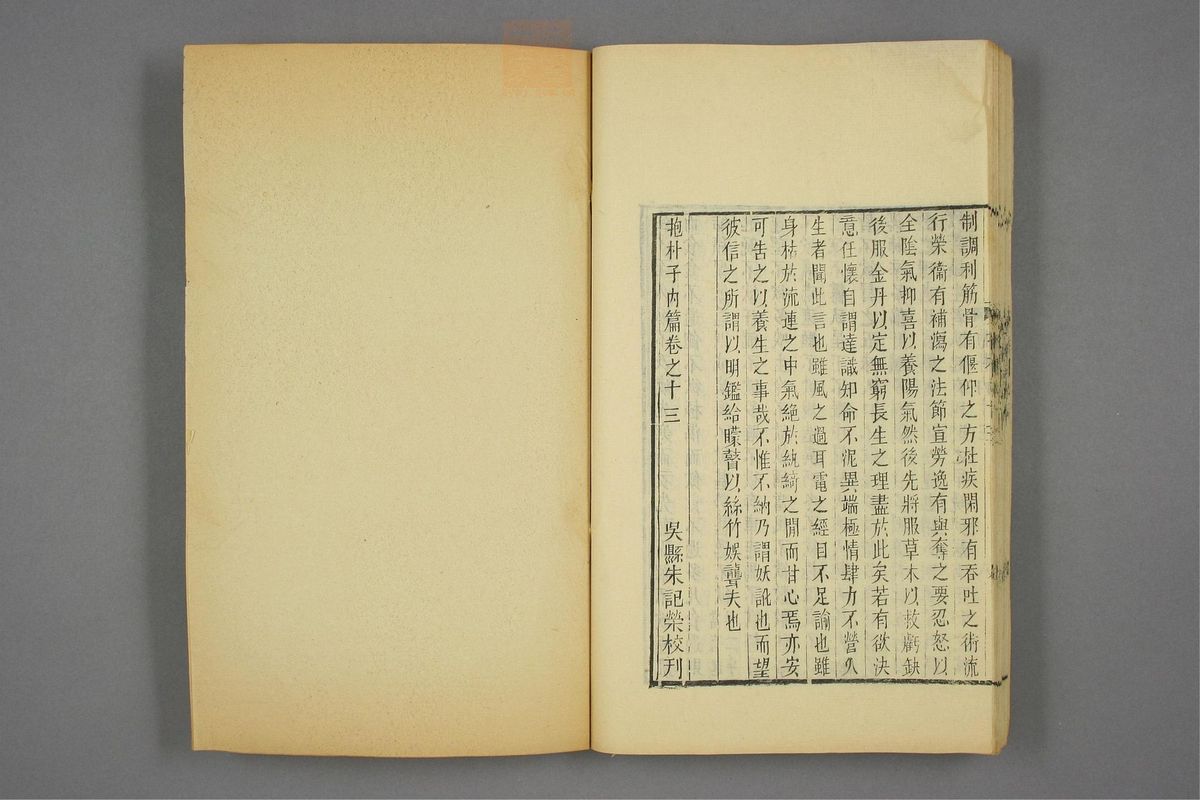 制調利筋骨有偃仰之方杜疾閑邪有吞吐之術流
行榮衞有補瀉之法節宣勞逸有與奪之要忍怒以
全陰氣抑喜以養陽氣然後先將服草木以救虧缺
後服金丹以定無窮長生之理盡於此矣若有欲決
意任懷自謂達識知命不泥異端極情肆力不營久
生者聞此言也雖風之過耳電之經目不足諭也雖
身枯於流連之中氣絕於紈綺之閒而甘心焉亦安
可告之以養生之事哉不惟不納乃謂妖訛也而望
彼信之所謂以明鑑給矇瞽以絲竹娛聾夫也
抱朴子內篇卷之十三 吳縣朱記榮校刊